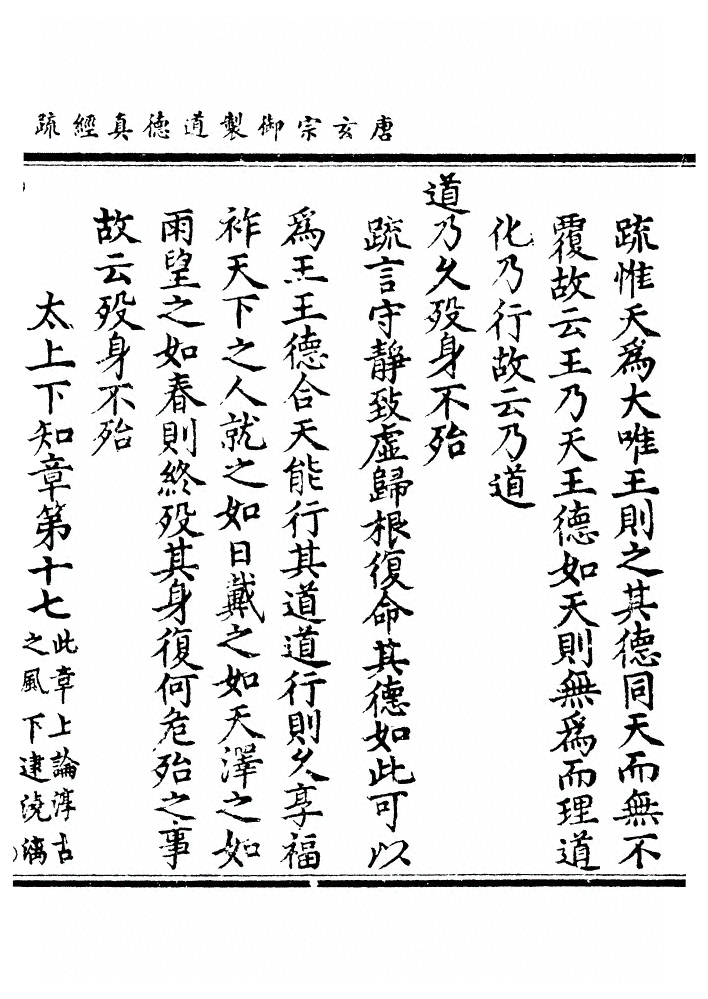 唐玄宗御製道德真經疏
疏惟天爲大唯王則之其德同天而無不
覆故云王乃天王德如天則無爲而理道
化乃行故云乃道
道乃久歿身不殆
疏言守靜致虛歸根復命其德如此可以
爲王王德合天能行其道道行則久享福
祚天下之人就之如日戴之如天澤之如
雨望之如春則終歿其身復何危殆之事
故云歿身不殆
太上下知章第十七此章上論淳古
之風下逮澆漓